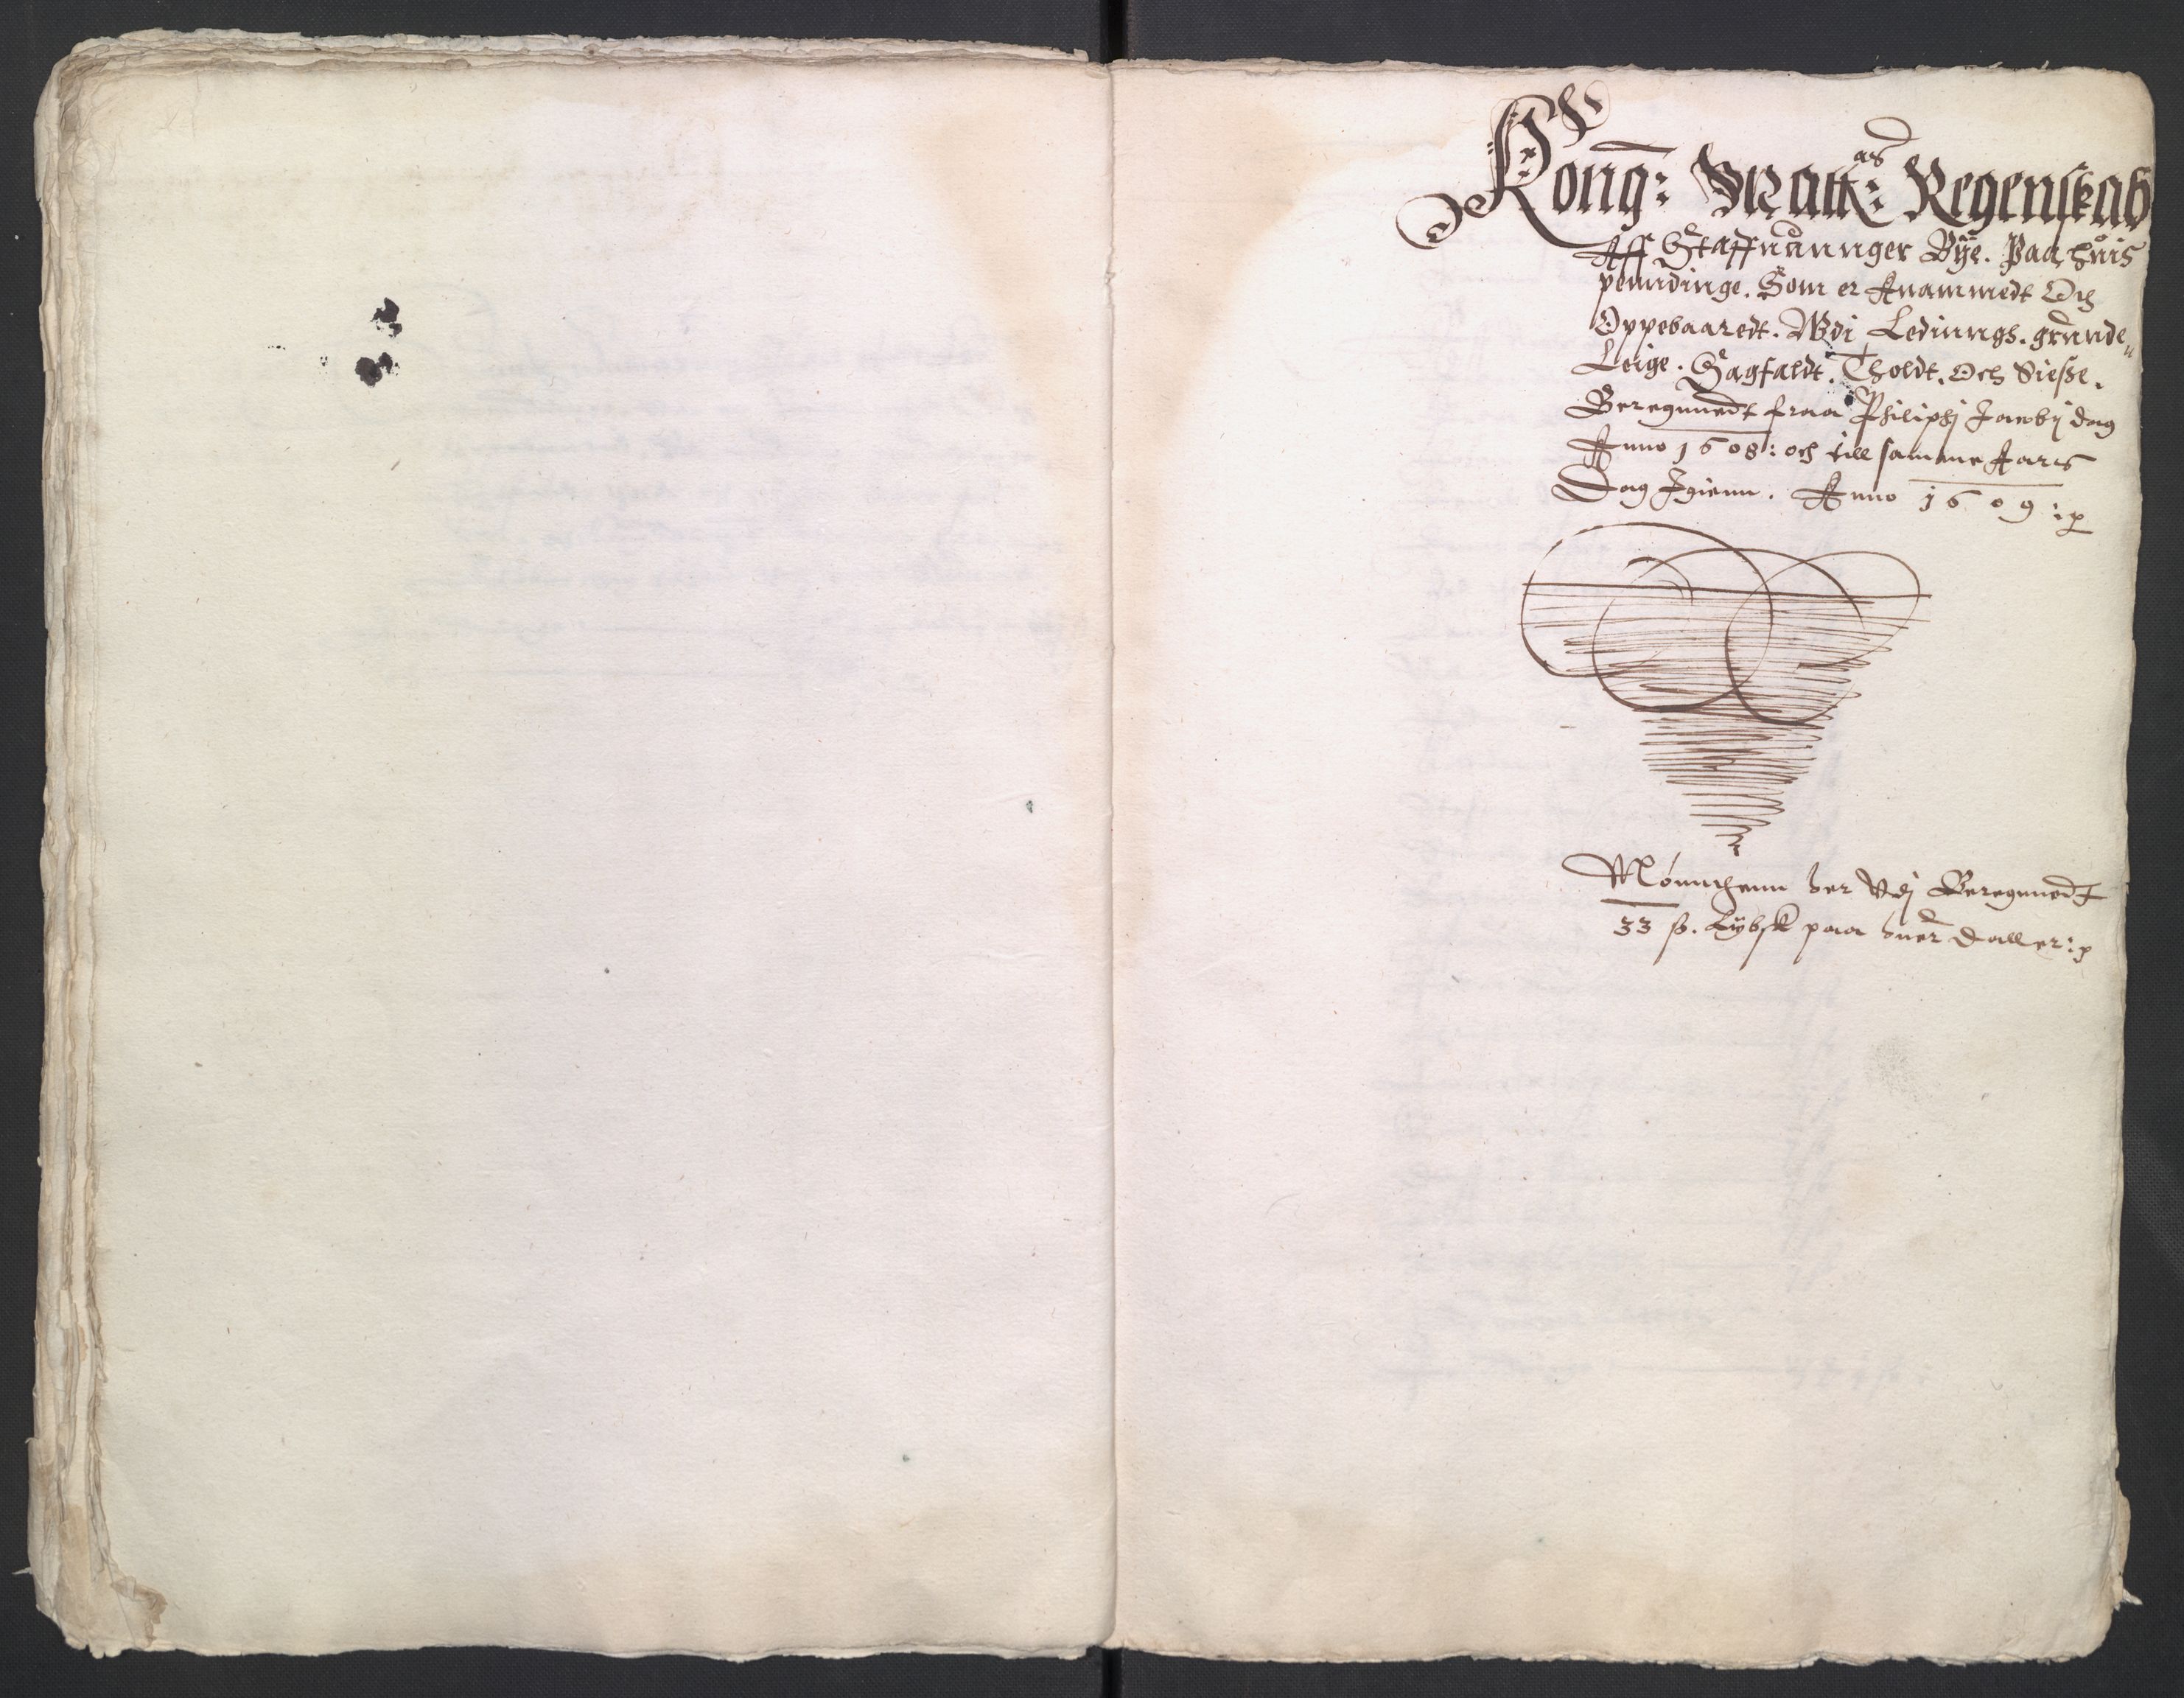 Kong: Maittˢ: Regenskab
Aff Staffuannger Bye. Paa huis
penndinge. Som er Anammedt Och
Oppebaaredt. Wdi Ledinngs. grunde„
Leige. Sagfaldt. Tholdt. Och Siesze.
Beregnnedt fraa Philiphi Jacobij dag
Anno 1608: och till samme Aars
Dag Igienn. Anno 1609:
Mønnthenn her Vdj Beregnnedt
33 ß. Lybsk paa huer daller: